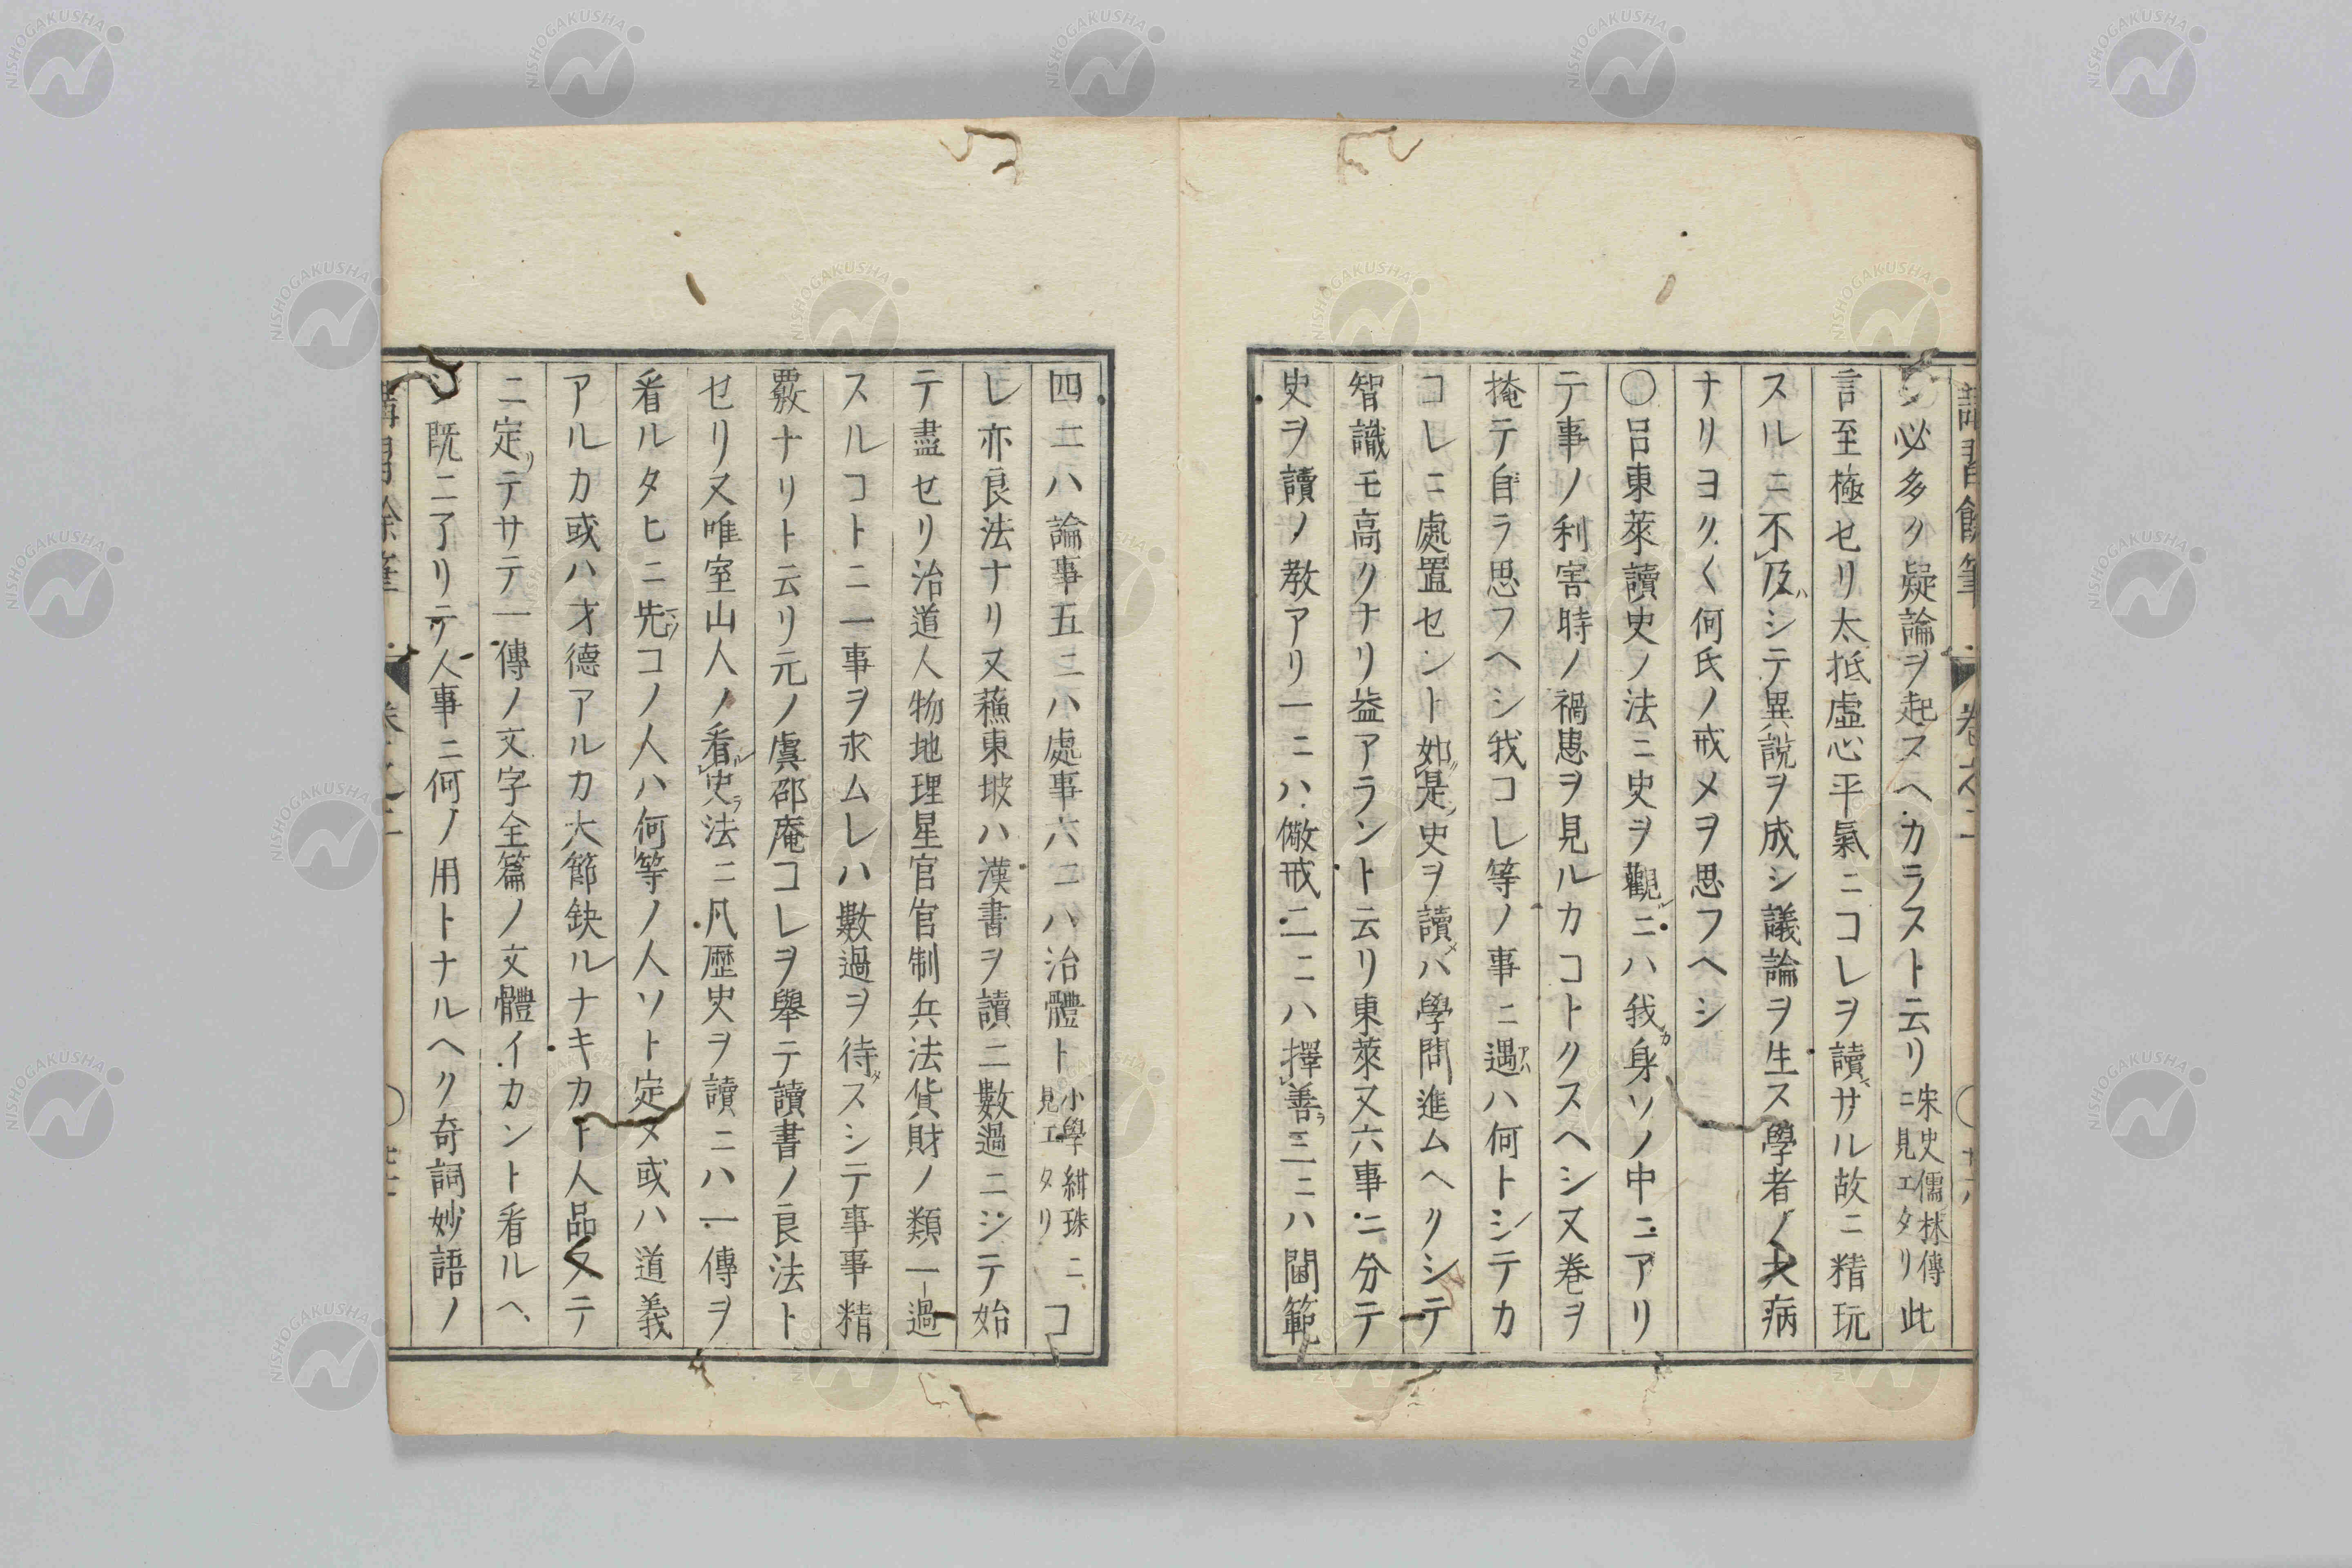 シ必多ク疑論ヲ起スヘカラスト云リ宋史儒林傳ニ見エタリ此
言至極セリ太抵虚心平氣ニコレヲ讀サル故ニ精玩
スルニ不及シテ異説ヲ成シ議論ヲ生ス學者ノ大病
ナリヨク〱何氏ノ戒メヲ思フヘシ
〇呂東萊讀史ノ法ニ史ヲ觀ルニハ我カ身ソノ中ニアリ
テ事ノ利害時ノ禍患ヲ見ルカコトクスヘシ又巻ヲ
掩テ自ラ思フヘシ我コレ等ノ事ニ遇ハハ何トシテカ
コレニ處置セント如是史ヲ讀メハ學問進ムヘクシテ
智識モ高クナリ益アラント云リ東萊又六事ニ分テ
史ヲ讀ノ教アリ一ニハ儆戒二ニハ擇善三ニハ閫範
四ニハ論事五ニハ處事六ニハ治體ト小學紺珠ニ見エタリコ
レ亦良法ナリ又蘓東坡ハ漢書ヲ讀ニ數過ニシテ始
テ盡セリ治道人物地理星官官制兵法貨財ノ類一過
スルコトニ一事ヲ求ムレハ數過ヲ待タスシテ事事精
覈ナリト云リ元ノ虞邵庵コレヲ舉テ讀書ノ良法ト
セリ又唯室山人ノ看史法ニ凡歴史ヲ讀ニハ一傳ヲ
看ルタヒニ先コノ人ハ何等ノ人ソト定メ或ハ道義
アルカ或ハ才德アルカ大節缺ルナキカト人品又テ
ニ定リテサテ一傳ノ文字全篇ノ文體イカント看ルヘ
シ既ニ了リテ人事ニ何ノ用トナルヘク奇詞妙語ノ
NISHOGAKUSHA